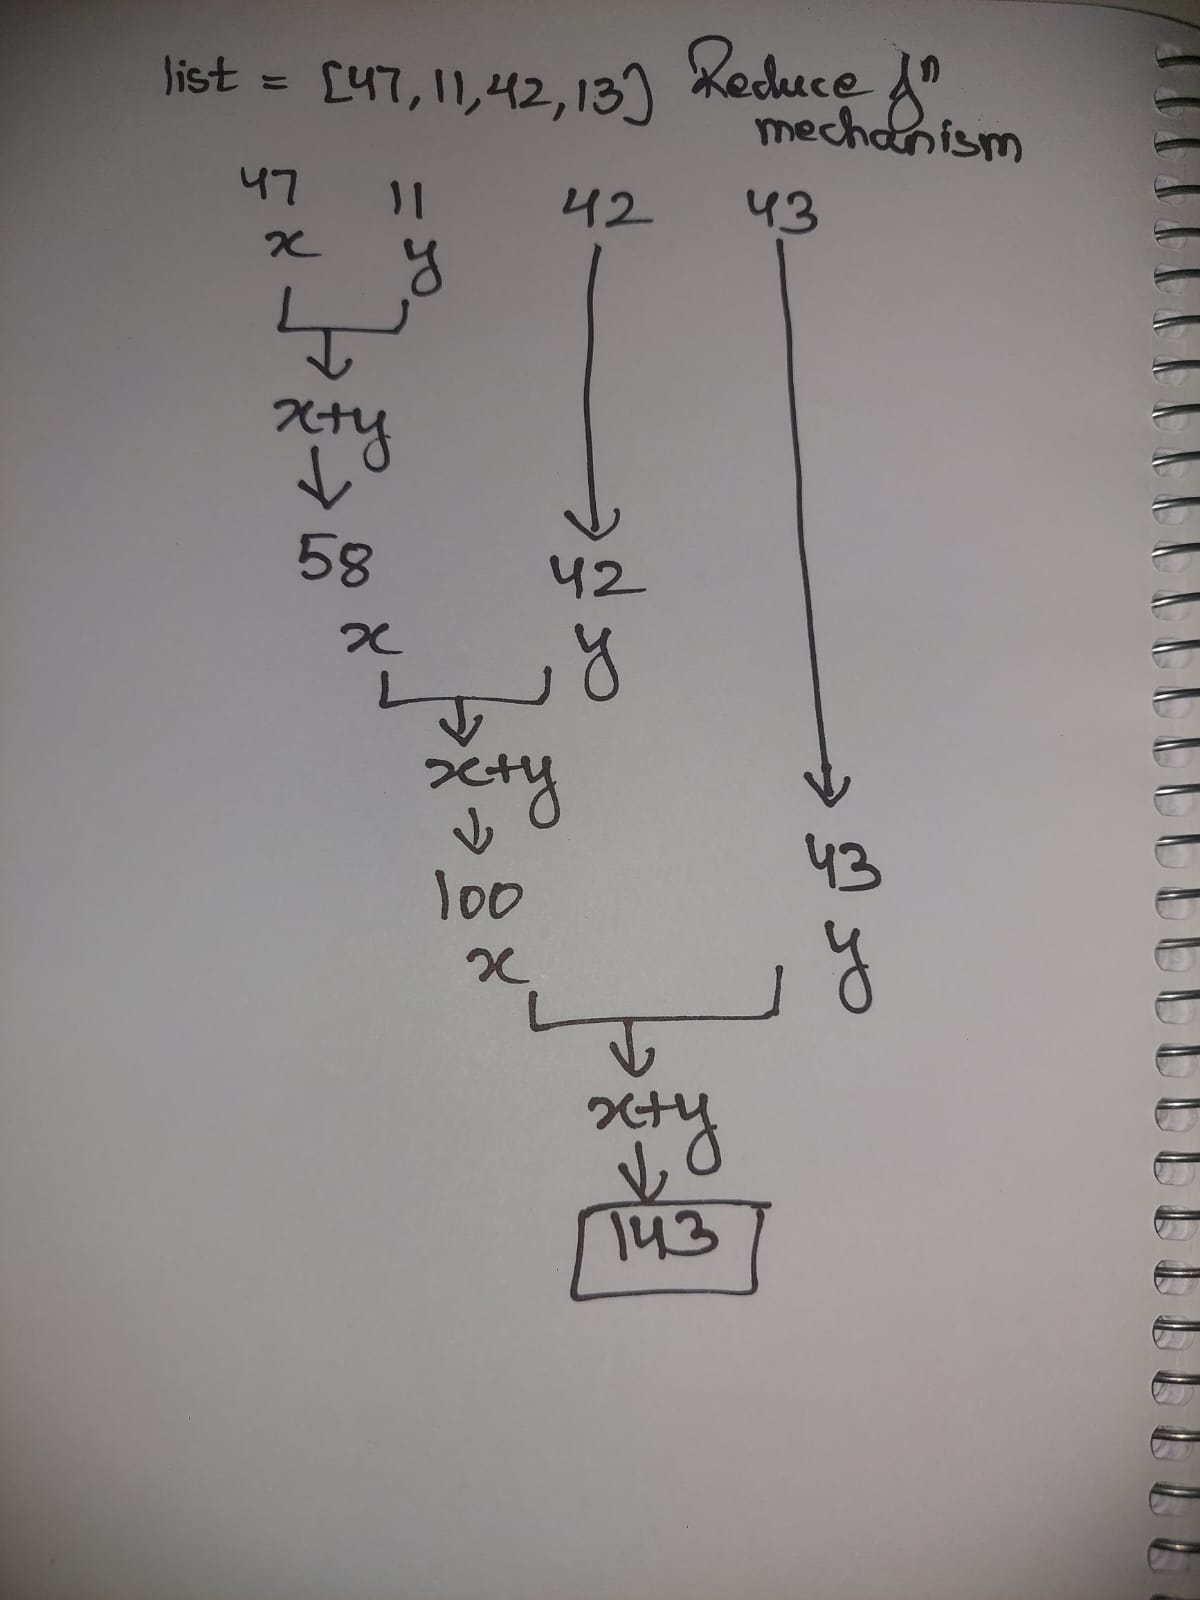 list = [47, 11, 42, 13] Reduce fn
mechanism
47 11 42 43
x y
x+y
58 42
x y
x+y
100 43
x y
x+y
143